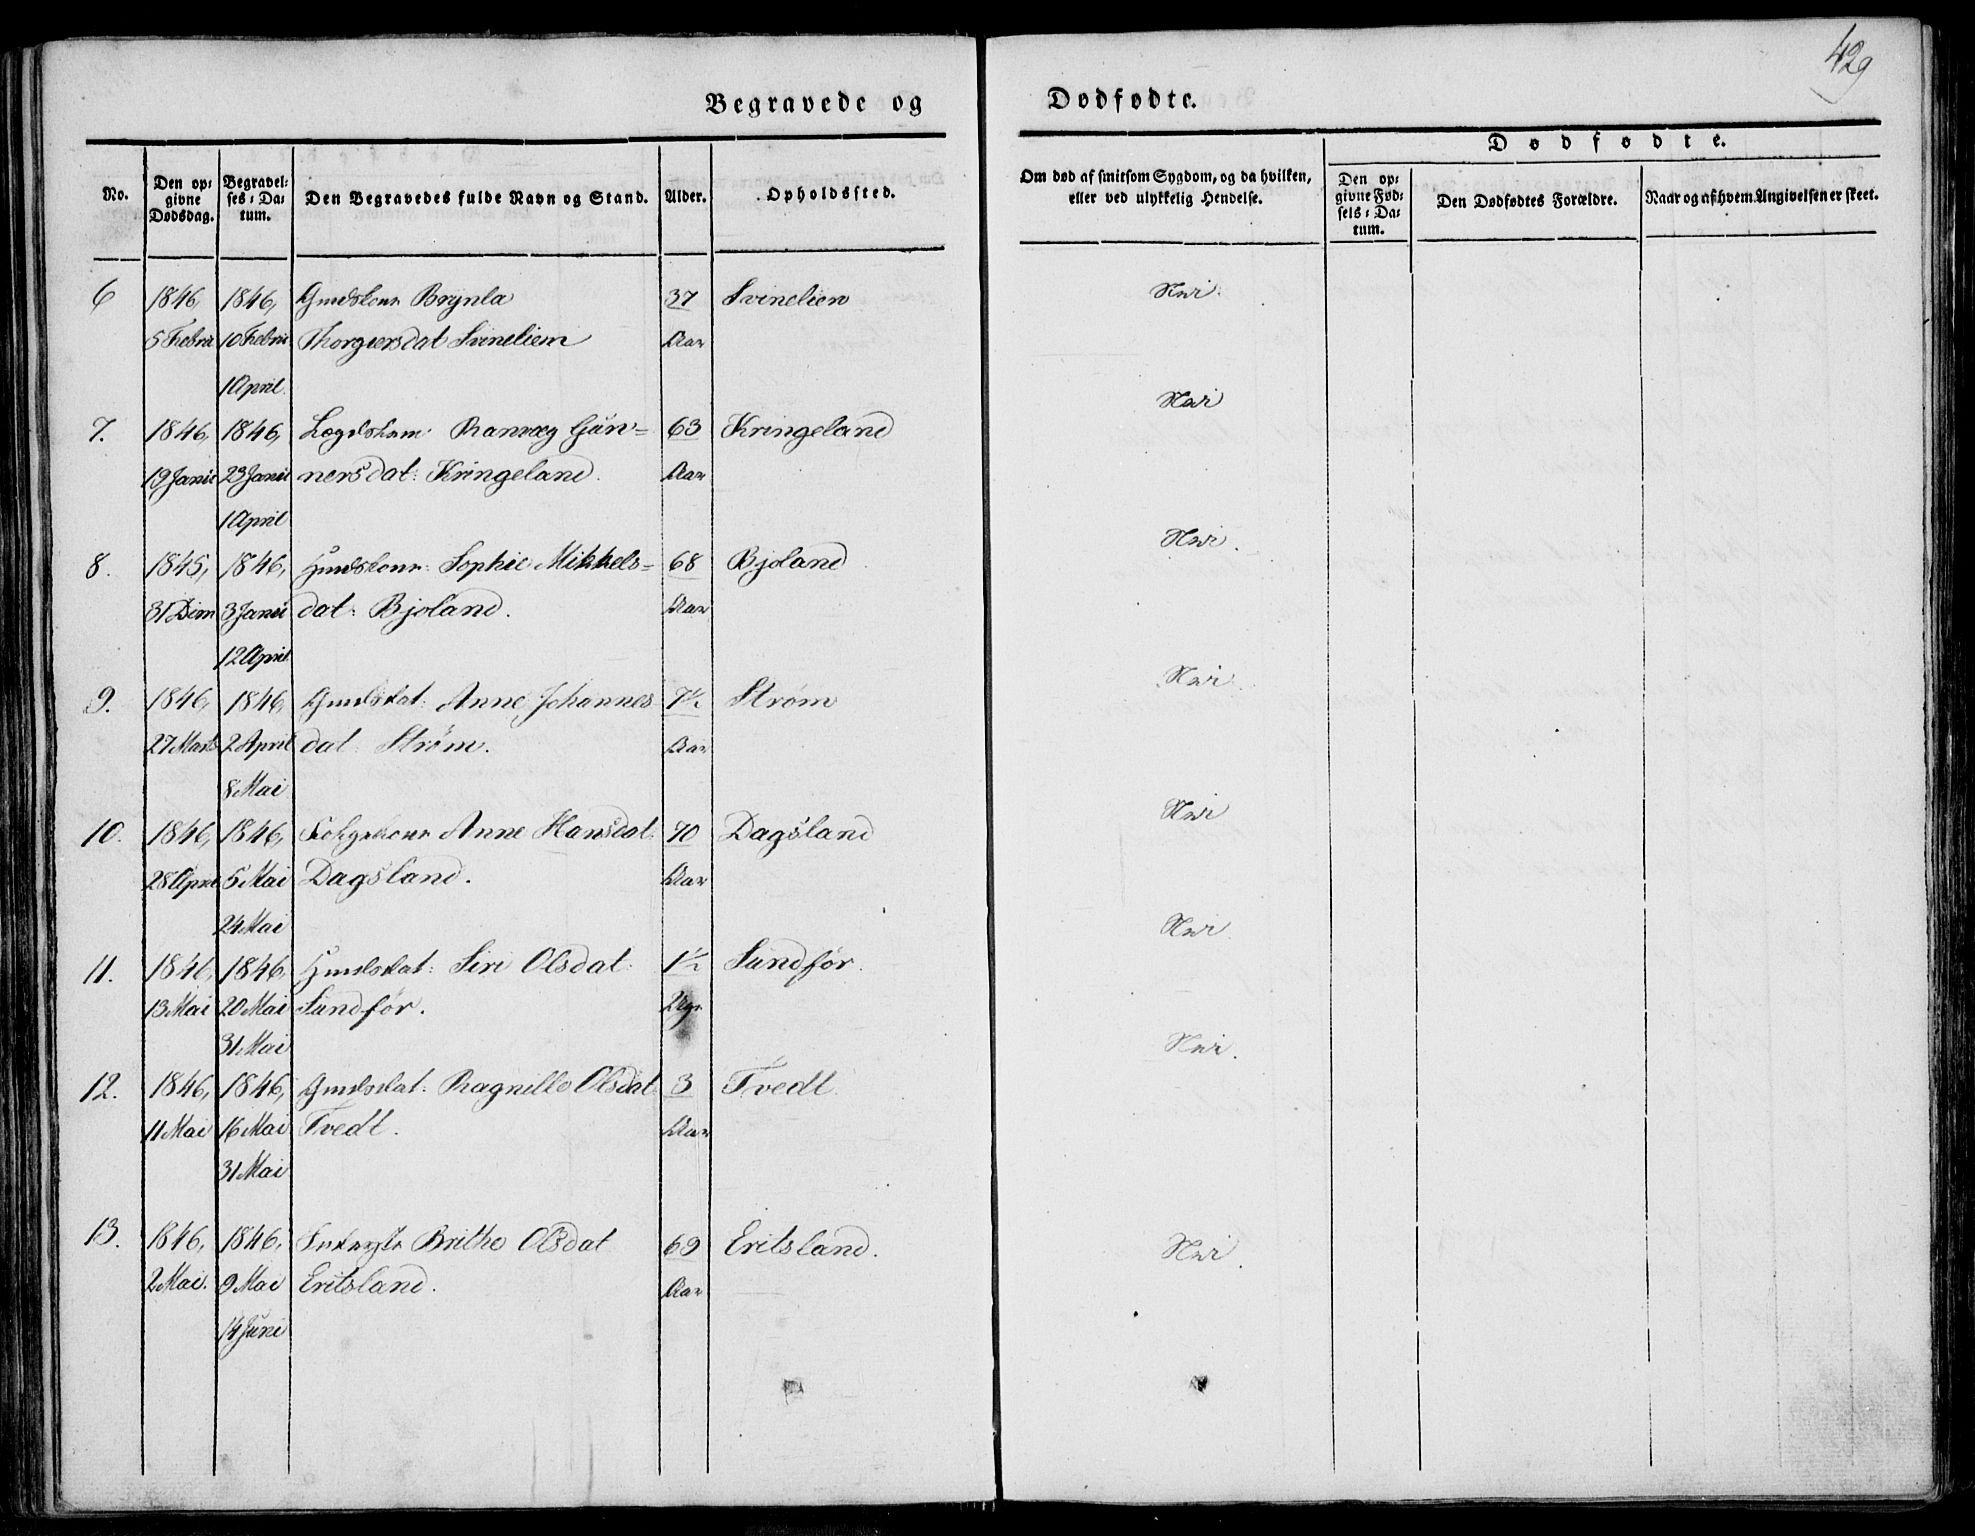 429
Begravede og Dødfødte.
No.
Den op=
givne
Dødsdag.
Begravel=
ses=Da=
tum.
Den Begravedes fulde Navn og Stand.
Alder.
Opholdssted.
Om død af smitsom Sygdom, og da hvilken,
eller ved ulykkelig Hendelse.
Dødfødte.
Den op=
givne Fød=
sels=Da=
tum.
Den Dødfødtes Forældre.
Naar og af hvem Angivelsen er skeet.
6 1846, 1846, Brynla 37 Svinelien Nei.
5 Febru 10 Febru Thorgiersdat Svineliem Aar
1 April
7. 1846, 1846, Ranvæg Gun= 63 Kringeland Nei
19 Janu 23 Janu nersdat: Kringeland. Aar
1 April
8. 1845, 1846, Sophie Mikkels= 68 Bjoland Nei.
31 Decm 3 Janu dat: Bjoland. Aar
12 April
9. 1846, 1846, Anne Johannes 7½ Strøm Nei.
27 Marts 2 April dat: Strøm. Aar
8 Mai
10. 1846, 1846, Anne Hansdat. 70 Dagsland Nei
28 April 5 Mai Dagsland. Aar
24 Mai
11. 1846, 1846 Siri Olsdat: 1½ Sundfør. Nei
13 Mai 20 Mai Sundfør.
31 Mai
12. 1846, 1846, Ragnille Olsdat 3 Tvedt Nei.
11 Mai 16 Mai Tvedt. Aar
31 Mai
13. 1846, 1846, Brithe Olsdat 69 Eritsland. Nei.
2 Mai. 9 Mai Eritsland. Aar
14 Juni